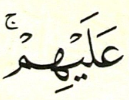 عَلَيْهِمْ ۚ